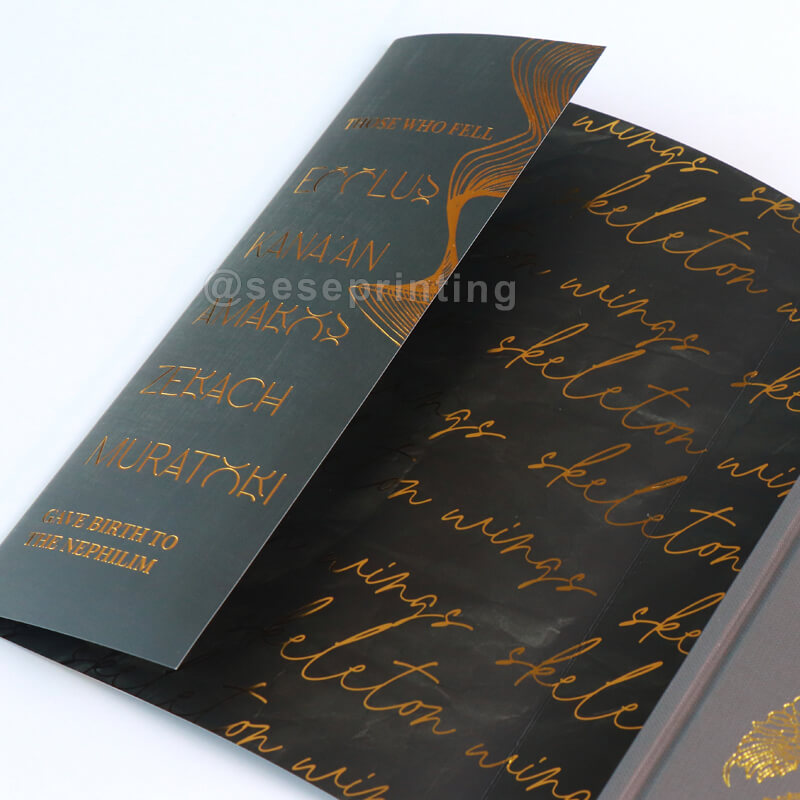 THOSE WHO FELL
KANA'AN
ZEKACH
GAVE BIRTH TO
THE NEPHILIM
@seseprinting
wings ske
skeleton w
on wings ske
skeleton wings
gs skeleton
on wings ske
wings skele
skeleton wings
skeleton
on wings